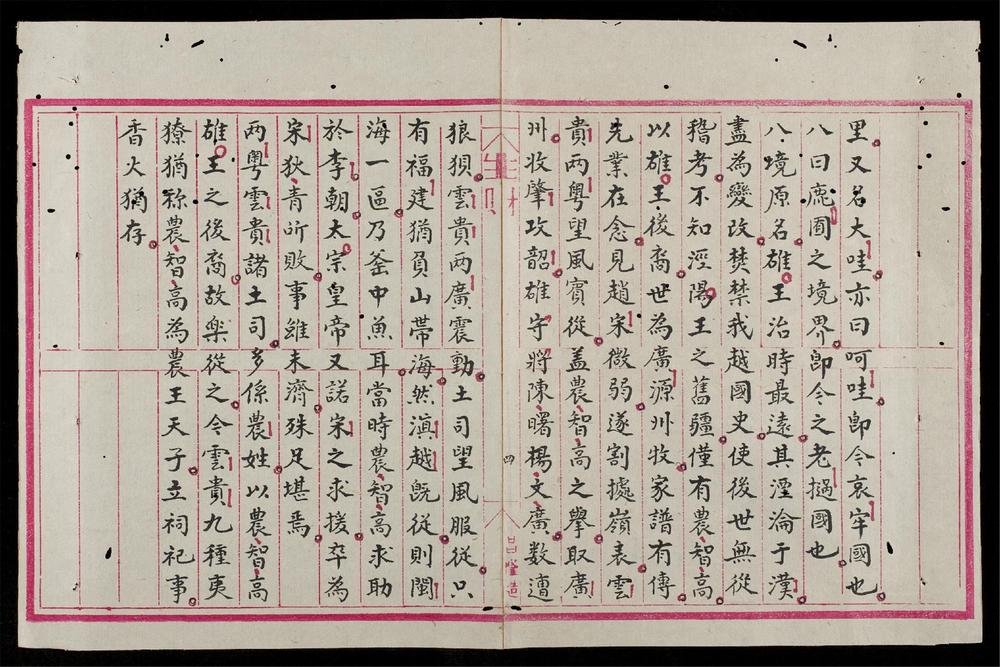 里又名大哇亦曰呵哇即今哀牢國也
八曰鹿圃之境界即今之老撾國也
八境原名雄王治時最遠其湮淪于漢
盡為變改焚禁我越國史使後世無從
稽考不知涇陽王之舊疆僅有農智高
以雄王後裔世為廣源州牧家譜有傳
先業在念見趙宋微弱遂割據嶺表雲
貴兩粤望風賓從盖農智高之擧取廣
州收肇攻韶雄守將陳曙楊文廣数遭
四
昌燈造
狼狽雲貴兩廣震動土司望風服從只
有福建猶負山帶海然滇越旣從則閩
海一區乃釜中魚耳當時農智高求助
於李朝太宗皇帝又諾宋之求援卒為
宋狄青所敗事雖未濟殊足堪焉
兩粤雲貴諸土司多係農姓以農智高
雄王之後裔故樂從之今雲貴九種夷
獠猶称農智高為農王天子立祠祀事
香火猶存